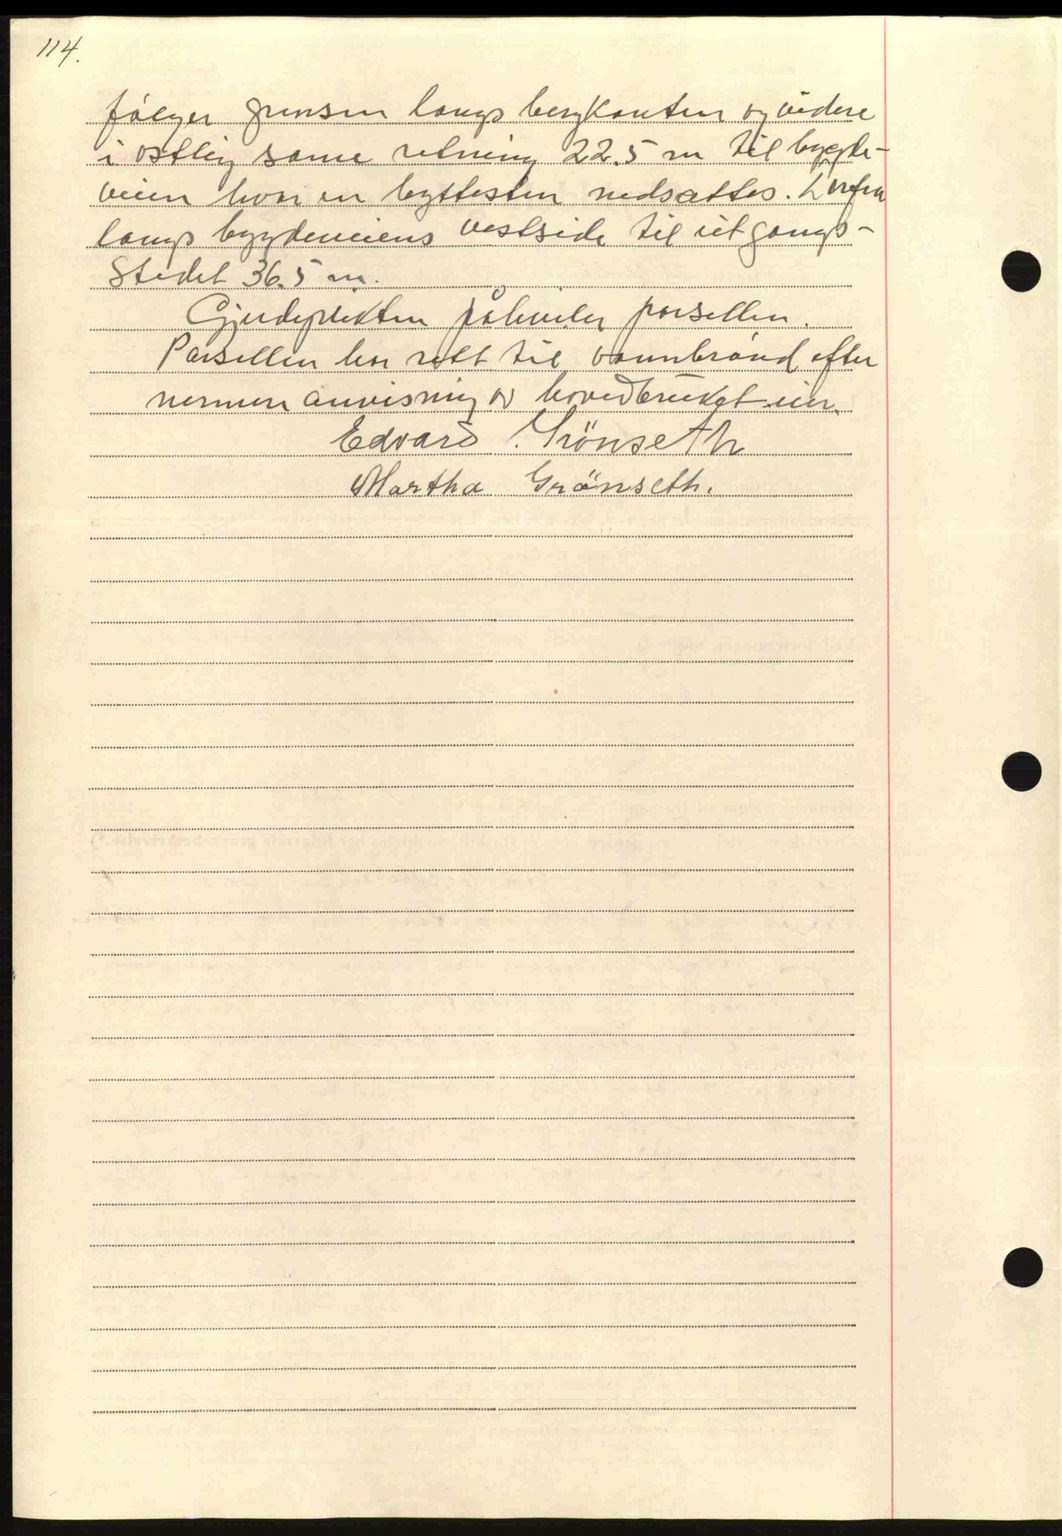 114.
følger grensen langs bergkanten og videre
i østlig same retning 22.5 m til bygde-
veien hvor en byttesten nedsættes. Herfra
langs bygdeveiens vestside til utgangs-
stedet 36.5 m.
Gjerdeplikten påhviler parsellen.
Parsellen har rett til vannbrønd efter
nermere anvisning av hovedbruket eier.
Edvard Grönseth
Martha Grönseth.